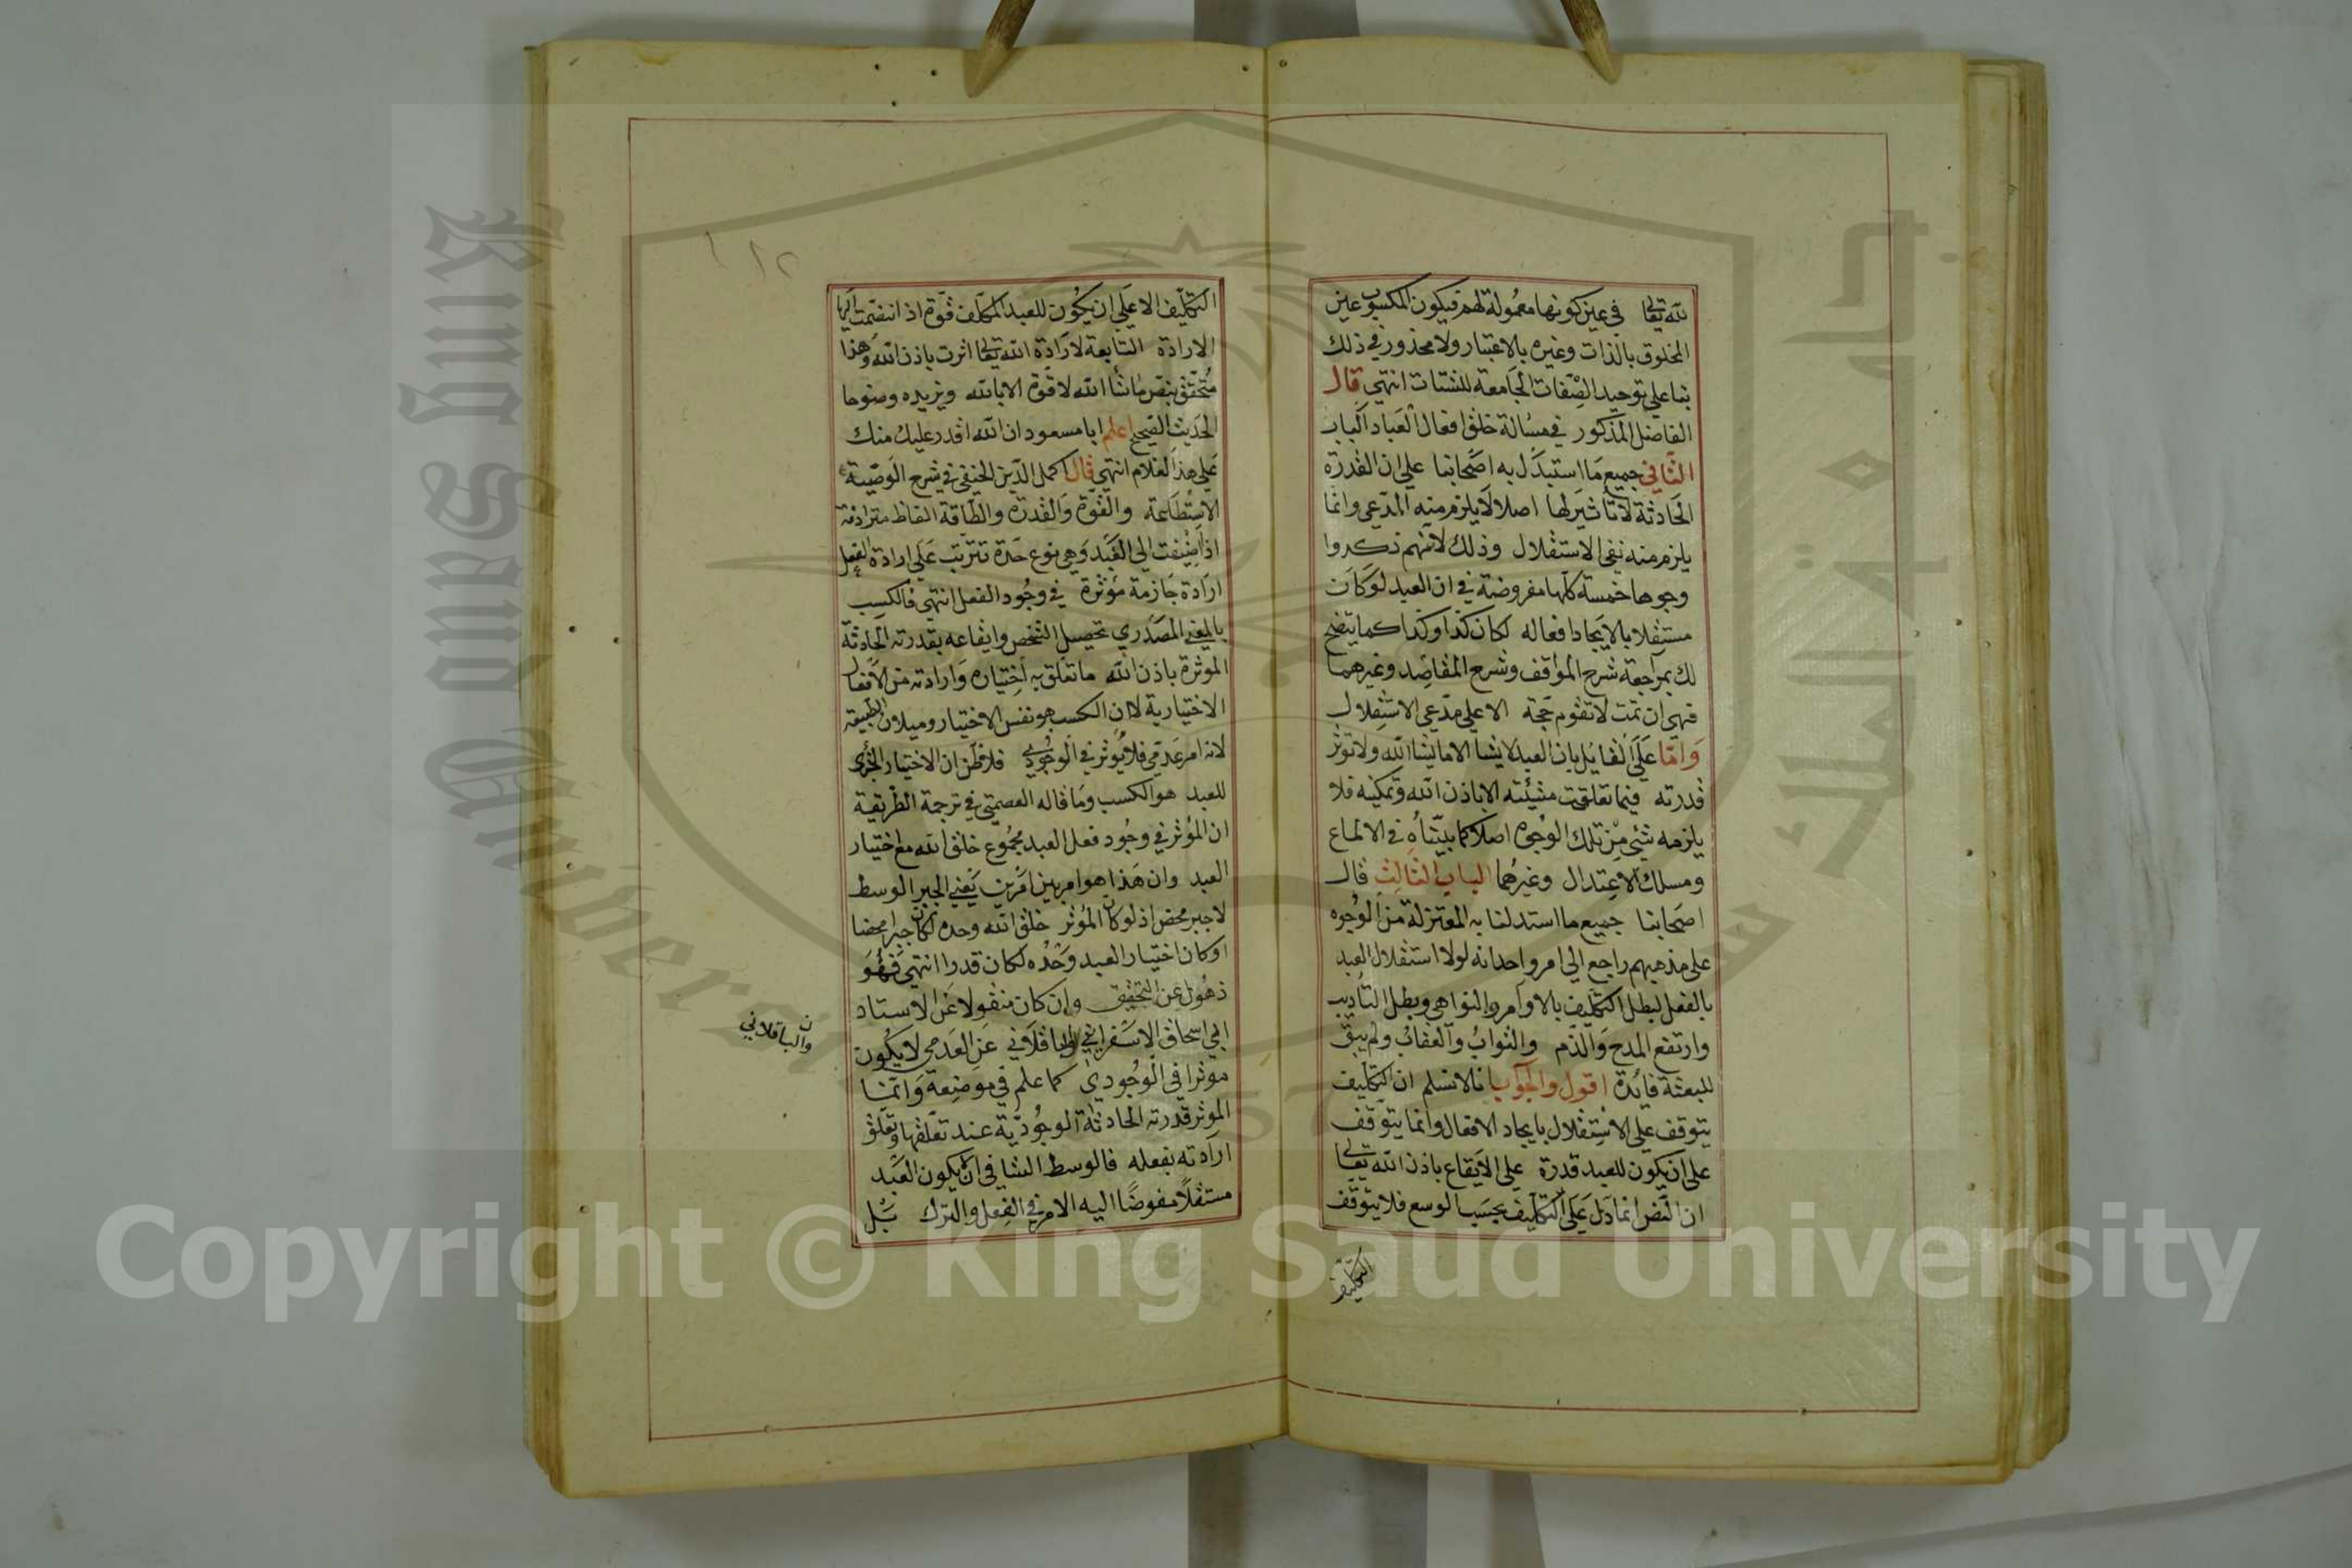 لله تعالى في عين كونها معمولة لهم فيكون المكسوب عين
المخلوق بالذات وغيره بالاعتبار ولا محذور في ذلك
بنا على توحيد الصفات الجامعة للشتات انتهى قال
الفاضل المذكور في مسالة خلق افعال العباد الباب
الثاني جميع ما استبدل به اصحابنا على ان القدرة
الحادثة لا تاثير لها اصلا لا يلزم منه المدعى وانما
يلزم منه نفي الاستقلال وذلك لانهم ذكروا
وجوها خمسة كلها مفروضة في ان العبد لو كان
مستقلا بالايجاد افعاله لكان كذا وكذا كما يتضح
لك بمراجعة شرح المواقف وشرح المقاصد وغيرهما
فهي ان تمت لا تقوم حجة الا على مدعى الاستقلال
واما على القايل بان العبد لا يشا الا ما يشا الله ولا تؤثر
قدرته فيما تعلقت مشيئته الا باذن الله وتمكينه فلا
يلزمه شيئ من تلك الوجوه اصلا كما بيناه في الالماع
ومسلك الاعتدال وغيرهما الباب الثالث قال
اصحابنا جميع ما استدلنا به المعتزلة من الوجوه
على مذهبهم راجع الى امر واحد انه لولا استقلال العبد
بالفعل لبطل التكليف بالاوامر والنواهي وبطل التاديب
وارتفع المدح والذم والثواب والعقاب ولم يبق
للبعثة فايدة اقول والجواب فلا نسلم ان التكليف
يتوقف على الاستقلال بايجاد الافعال وانما يتوقف
على ان يكون للعبد قدرة على الايقاع باذن الله تعالى
ان النص انما دل على التكليف بحسب الوسع فلا يتوقف
التكليف
١١٢
التكليف الا على ان يكون للعبد المكلف قوة اذ انضمت اليها
الارادة التابعة لارادة الله تعالى اثرت باذن الله وهذا
متحقق بنص ما شا الله لا قوة الا بالله ويزيده وضوحا
الحديث الصحيح اعلم ابا مسعود ان الله اقدر عليك منك
على هذا الغلام انتهى قال اكمل الدين الحنفي في شرح الوصية
الاستطاعة والقوة والقدرة والطاقة الفاظ مترادفة
اذا اضيفت الى العبد وهي نوع حدة تترتب على ارادة الفعل
ارادة جازمة مؤثرة في وجود الفعل انتهى فالكسب
بالمعنى المصدري تحصيل الشخص وايقاعه بقدرته الحادثة
الموثرة باذن الله ما تعلق به اختياره وارادته من الافعال
الاختيارية لا ان الكسب هو نفس الاختيار وميلان الطبيعة
لانه امر عدمي فلا يؤثر في الوجودي فلا تظن ان الاختيار الجزى
للعبد هو الكسب وما قاله العصمتي في ترجمة الطريقية
ان المؤثر في وجود فعل العبد مجموع خلق الله مع اختيار
العبد وان هذا هو امر بين امرين يعني الجبر الوسط
لا جبر محض اذ لو كان المؤثر خلق الله وحده لكان جبرا محضا
او كان اختيار العبد وحده لكان قدرا انتهى فهو
ذهول عن التحقيق وان كان منقولا عن الاستاد
ابي اسحاق الاسفراينى والباقلاني عن العدمي لا يكون
والباقلاني ن
موثرا في الوجودي كما علم في موضعه وانما
الموثر قدرته الحادثة الوجودية عند تعلقها وتعلق
ارادته بفعله فالوسط الشافي ان يكون العبد
مستقلا مفوضا اليه الامر في الفعل والترك بل
King Saud University
Copyright © King Saud University